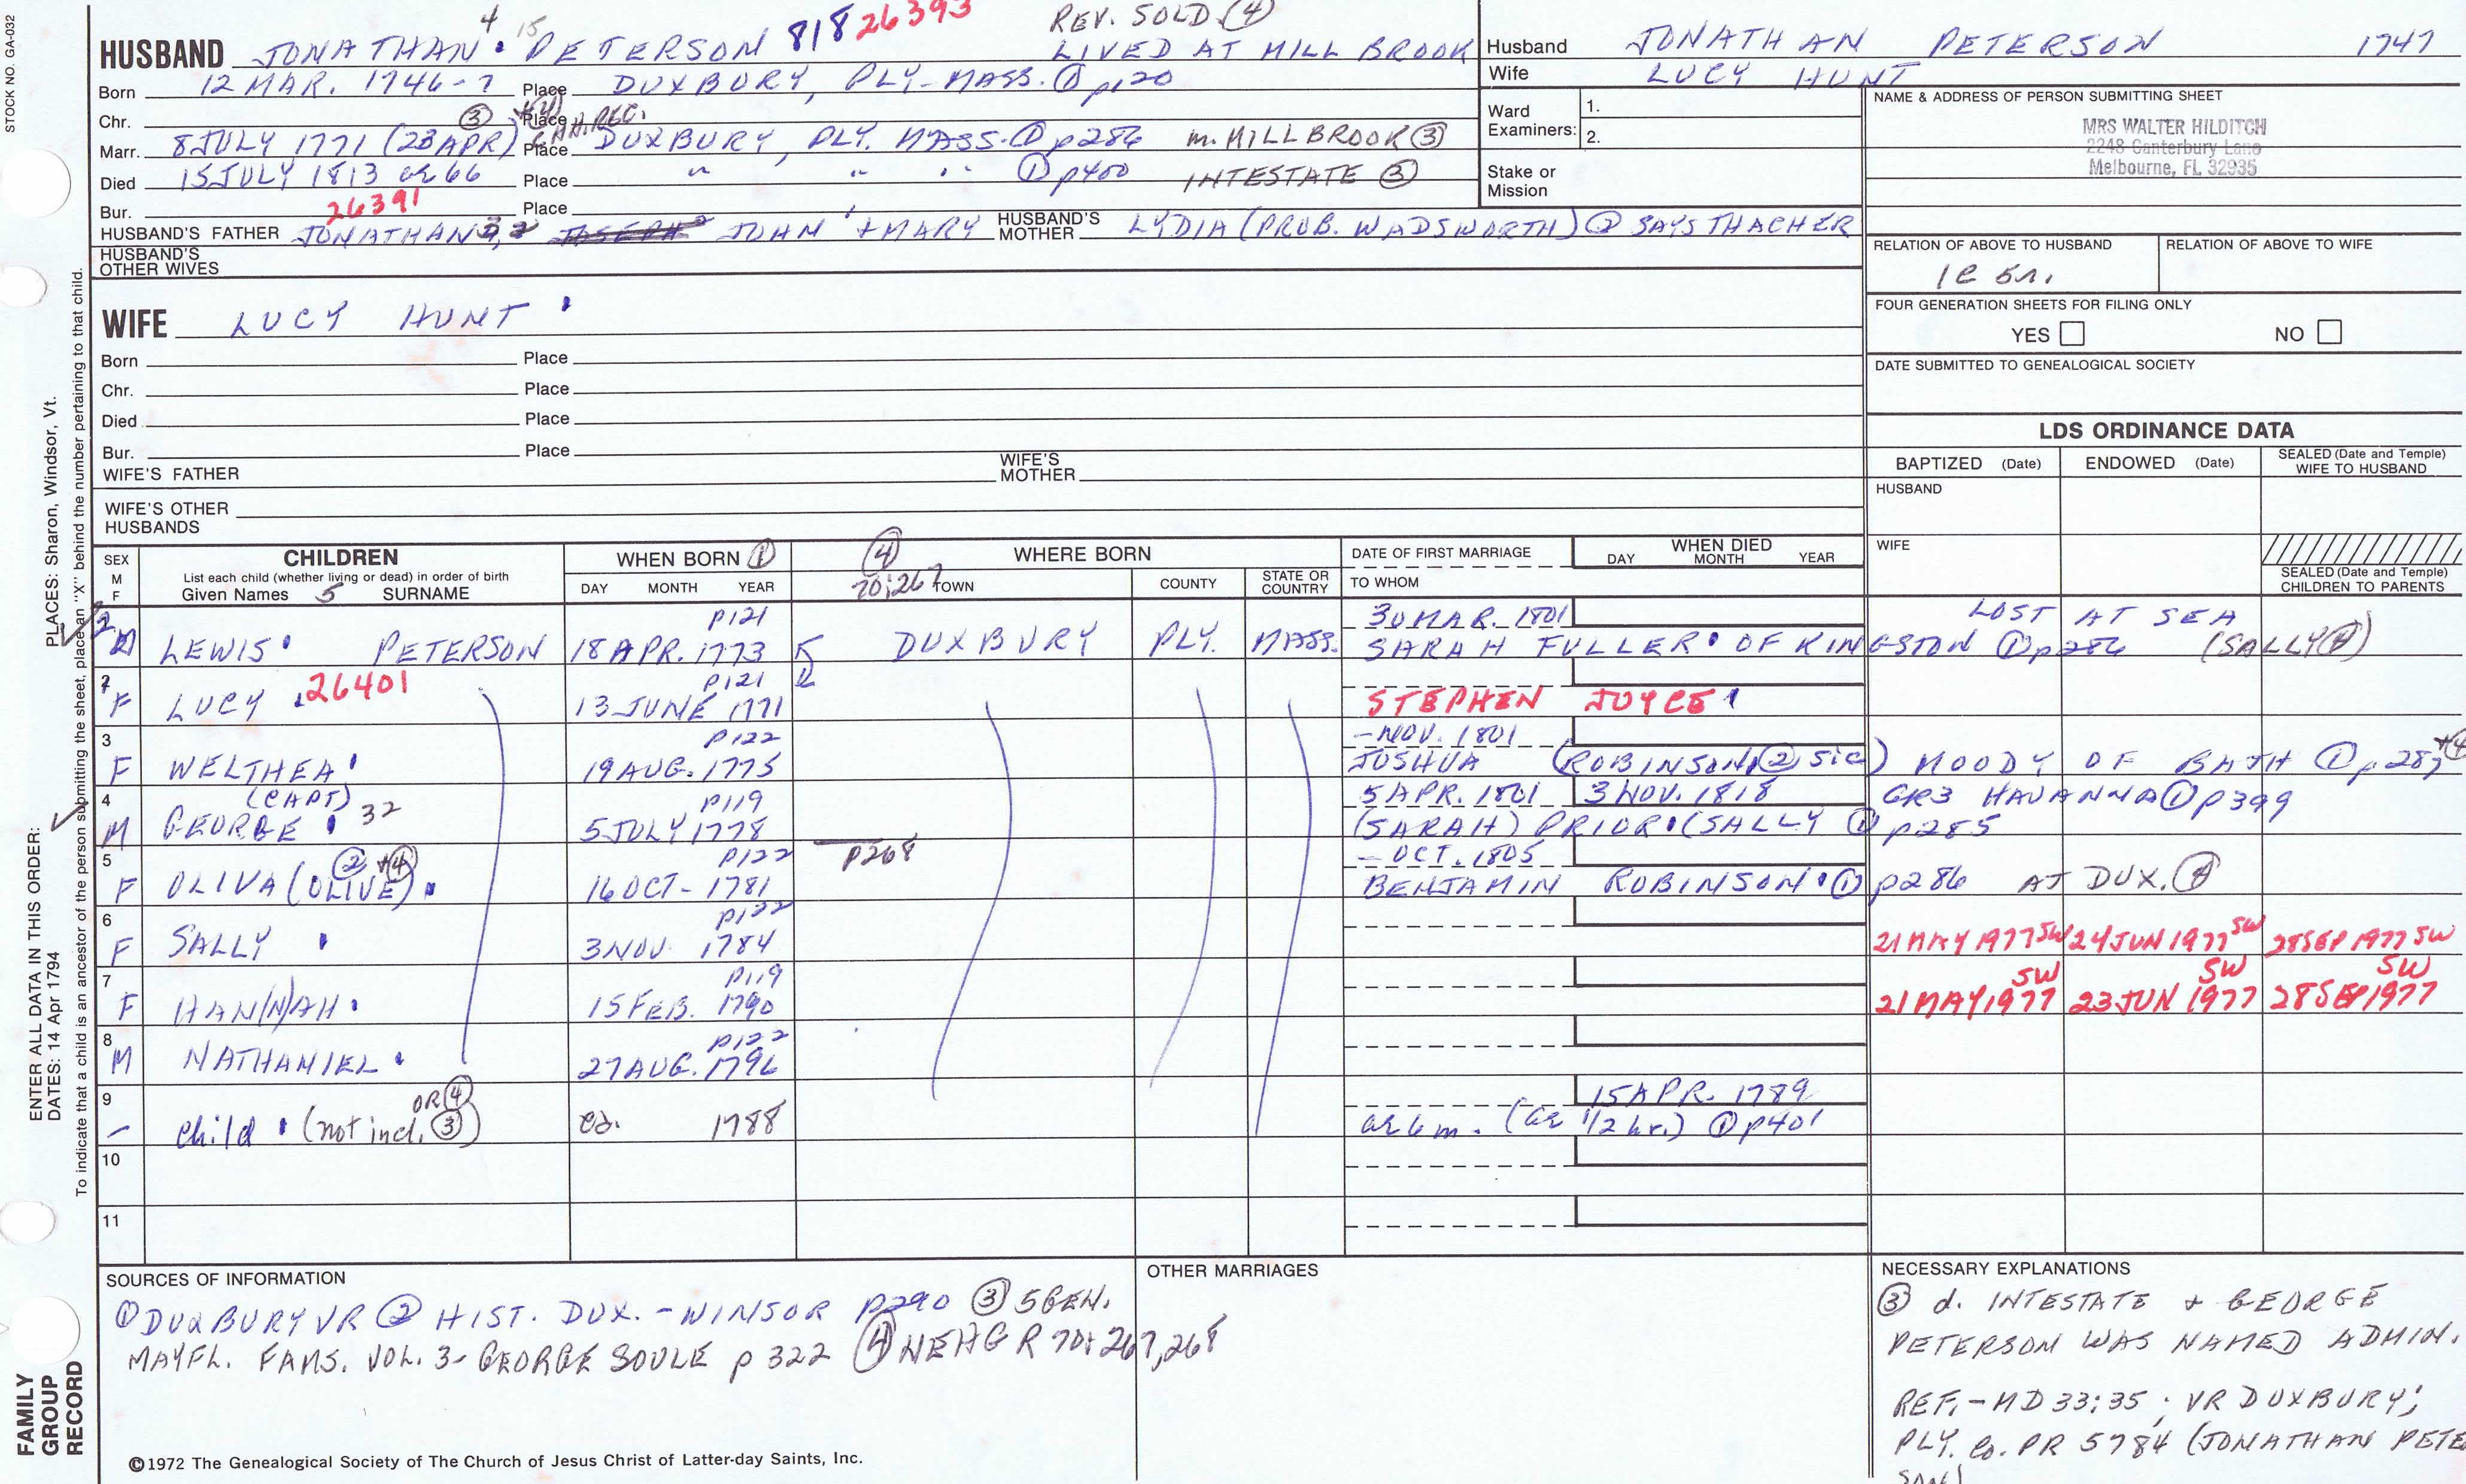 STOCK NO. GA-032
4 15 818 26393 REV. SOLD (4)
HUSBAND JONATHAN PETERSON LIVED AT MILL BROOK
Born 12 MAR. 1746-7 Place DUXBURY, PLY. MASS. ① p120
Chr. ③ +④ Place CAH. REC.
Marr. 8 JULY 1771 (23 APR) Place DUXBURY, PLY. MASS. ① p286 m. MILLBROOK ③
Died 15 JULY 1813 ae 66 Place " " " ① p400 INTESTATE ③
Bur. 26391 Place
HUSBAND'S FATHER JONATHAN 3, 2 JOSEPH 2 JOHN + MARY HUSBAND'S MOTHER LYDIA (PROB. WADSWORTH) ② SAYS THACHER
HUSBAND'S OTHER WIVES
WIFE LUCY HUNT
Born Place
Chr. Place
Died Place
Bur. Place
WIFE'S FATHER WIFE'S MOTHER
WIFE'S OTHER HUSBANDS
Husband JONATHAN PETERSON 1747
Wife LUCY HUNT
Ward Examiners: 1.
2.
Stake or Mission
NAME & ADDRESS OF PERSON SUBMITTING SHEET
MRS WALTER HILDITCH
2248 Canterbury Lane
Melbourne, FL 32935
RELATION OF ABOVE TO HUSBAND RELATION OF ABOVE TO WIFE
1C 5r.
FOUR GENERATION SHEETS FOR FILING ONLY
YES NO
DATE SUBMITTED TO GENEALOGICAL SOCIETY
LDS ORDINANCE DATA
BAPTIZED (Date) ENDOWED (Date) SEALED (Date and Temple) WIFE TO HUSBAND
HUSBAND
WIFE
SEALED (Date and Temple) CHILDREN TO PARENTS
SEX M F
CHILDREN
List each child (whether living or dead) in order of birth
Given Names 5 SURNAME
WHEN BORN ①
DAY MONTH YEAR
④ 70:267 WHERE BORN
TOWN COUNTY STATE OR COUNTRY
DATE OF FIRST MARRIAGE
TO WHOM
WHEN DIED
DAY MONTH YEAR
p121 30 MAR. 1801 LOST AT SEA
2 M LEWIS PETERSON 18 APR. 1773 DUXBURY PLY. MASS. SARAH FULLER OF KINGSTON ① p286 (SALLY ④)
26401 p121
F LUCY 13 JUNE 1771 STEPHEN JOYCE
3 p122 - NOV. 1801
F WELTHEA 19 AUG. 1775 JOSHUA (ROBINSON, ② sic) MOODY OF BATH ① p287 +4
4 (CAPT) p119 5 APR. 1801 3 NOV. 1818 GR3 HAVANNA ① p399
M GEORGE 32 5 JULY 1778 (SARAH) PRIOR (SALLY ① p285
5 ② +④ p122 p268 - OCT. 1805
F OLIVA (OLIVE) 16 OCT - 1781 BENJAMIN ROBINSON ① p286 AT DUX. ④
6 p122
F SALLY 3 NOV. 1784 21 MAY 1977 SW 24 JUN 1977 SW 28 SEP 1977 SW
7 p119 SW SW SW
F HAN(N)AH 15 FEB. 1790 21 MAY 1977 23 JUN 1977 28 SEP 1977
8 p122
M NATHANIEL 27 AUG. 1796
9 OR ④ 15 APR. 1789
- child (not incl. ③) ca. 1788 ae 6 m. (ae 1/2 hr.) ① p401
10
11
SOURCES OF INFORMATION
① DUXBURY VR ② HIST. DUX. - WINSOR p290 ③ 5 GEN.
MAYFL. FAMS. VOL. 3 - GEORGE SOULE p 322 ④ NEHGR 70:267,268
OTHER MARRIAGES
NECESSARY EXPLANATIONS
③ d. INTESTATE + GEORGE
PETERSON WAS NAMED ADMIN.
REF. - MD 33:35; VR DUXBURY;
PLY. Co. PR 5784 (JONATHAN PETE
©1972 The Genealogical Society of The Church of Jesus Christ of Latter-day Saints, Inc.
FAMILY GROUP RECORD
ENTER ALL DATA IN THIS ORDER:
DATES: 14 Apr 1794
PLACES: Sharon, Windsor, Vt.
To indicate that a child is an ancestor of the person submitting the sheet, place an "X" behind the number pertaining to that child.